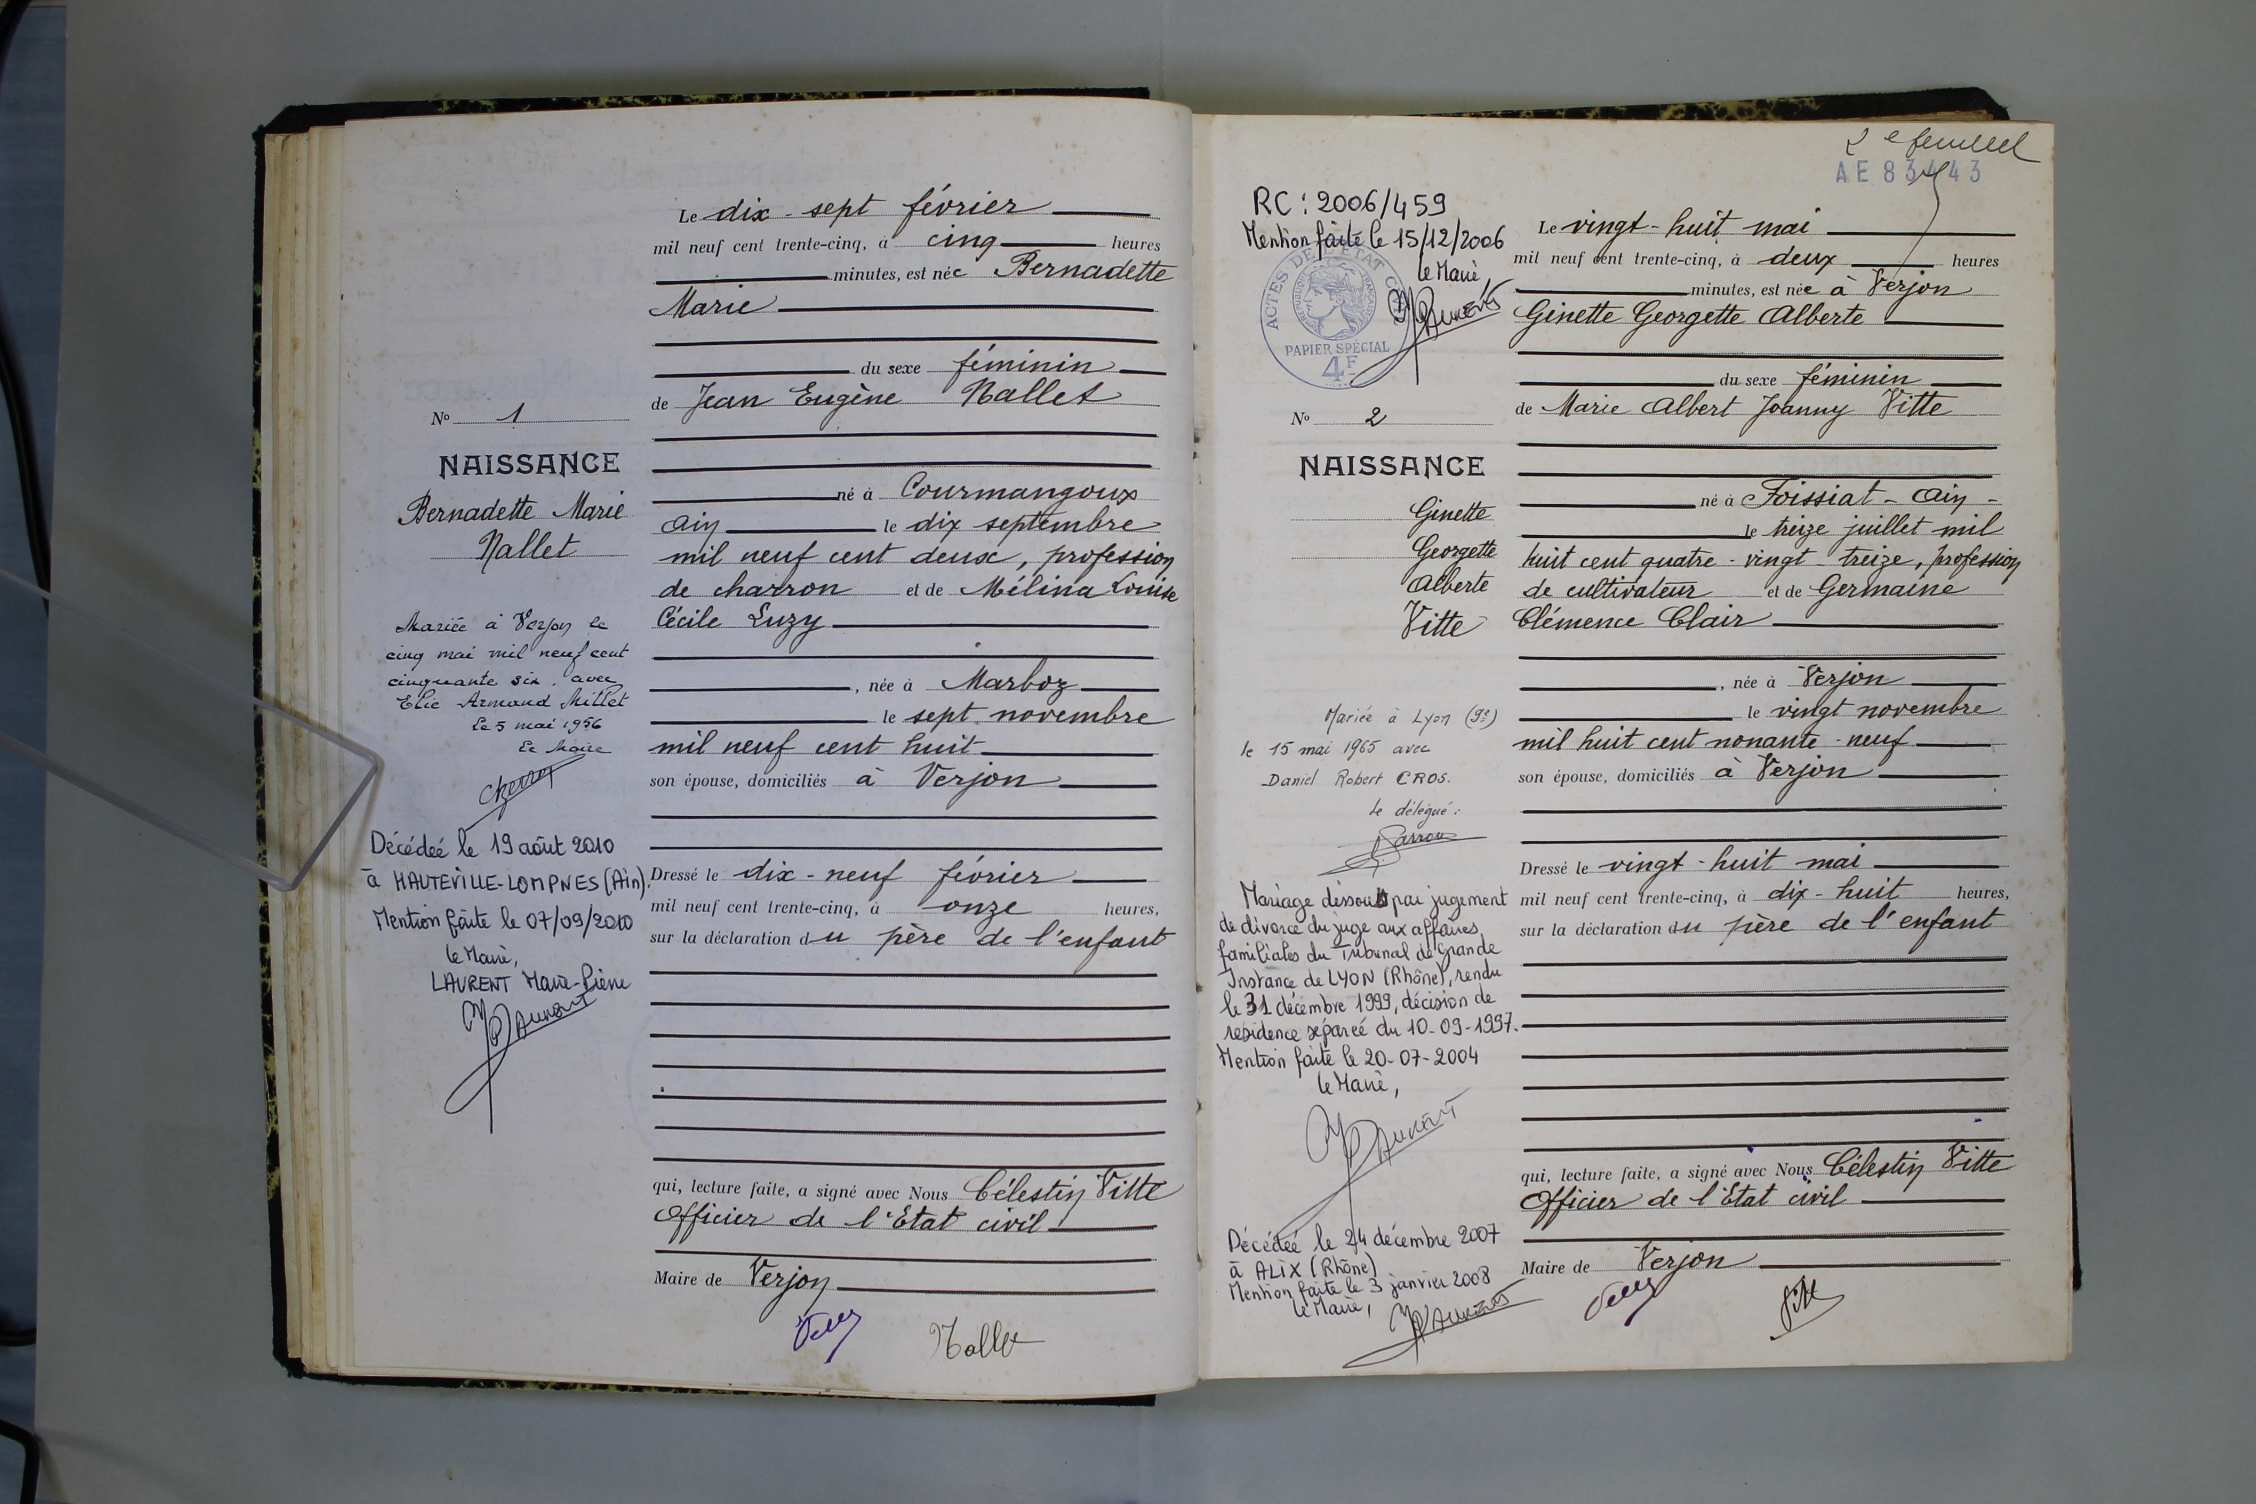 Le dix-sept février
mil neuf cent trente-cinq, à cinq heures
minutes, est née Bernadette
Marie
du sexe féminin
de Jean Eugène Nallet
né à Courmangoux
Ain le dix septembre
mil neuf cent deux, profession
de charron et de Mélina Louise
Cécile Luzy
, née à Marboz
le sept novembre
mil neuf cent huit
son épouse, domiciliés à Verjon
Dressé le dix-neuf février
mil neuf cent trente-cinq, à onze heures,
sur la déclaration du père de l'enfant
qui, lecture faite, a signé avec Nous Célestin Vitte
Officier de l'Etat civil
Maire de Verjon
Nallet
No 1
NAISSANCE
Bernadette Marie
Nallet
Mariée à Verjon le
cinq mai mil neuf cent
cinquante six, avec
Elie Armand Millet
Le 5 mai 1956
Le Maire
Décédée le 19 août 2010
à HAUTEVILLE-LOMPNES (Ain).
Mention faite le 07/09/2010
le Maire,
LAURENT Marie-Pierre
2e feuillet
AE 83443
RC : 2006/459
Mention faite le 15/12/2006
le Maire
ACTES DE L'ETAT CIVIL
PAPIER SPÉCIAL
4F
No 2
NAISSANCE
Ginette
Georgette
Alberte
Vitte
Mariée à Lyon (9e)
le 15 mai 1965 avec
Daniel Robert CROS.
Le délégué :
Mariage dissout par jugement
de divorce du juge aux affaires
familiales du Tribunal de Grande
Instance de LYON (Rhône), rendu
le 31 décembre 1999, décision de
residence séparée du 10-09-1997.
Mention faite le 20-07-2004
le Maire,
Décédée le 24 décembre 2007
à ALIX (Rhône)
Mention faite le 3 janvier 2008
le Maire,
Le vingt-huit mai
mil neuf cent trente-cinq, à deux heures
minutes, est née à Verjon
Ginette Georgette Alberte
du sexe féminin
de Marie Albert Joanny Vitte
né à Foissiat - Ain -
le treize juillet mil
huit cent quatre-vingt-treize, profession
de cultivateur et de Germaine
Clémence Clair
, née à Verjon
le vingt novembre
mil huit cent nonante-neuf
son épouse, domiciliés à Verjon
Dressé le vingt-huit mai
mil neuf cent trente-cinq, à dix-huit heures,
sur la déclaration du père de l'enfant
qui, lecture faite, a signé avec Nous Célestin Vitte
Officier de l'Etat civil
Maire de Verjon
Vitte